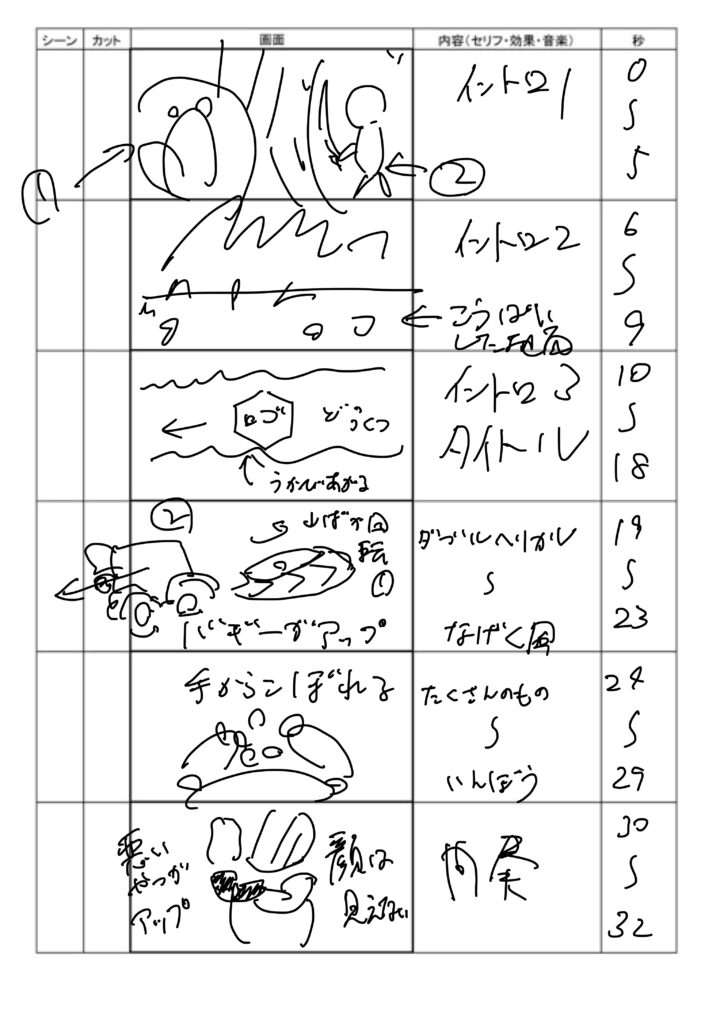 シーン カット 画面 内容（セリフ・効果・音楽） 秒
① ② イントロ1 0 〜 5
イントロ2 6 〜 9
こうばい
した
ロゴ どうくつ
うかびあがる
イントロ3
タイトル
10 〜 18
②
回
転
①
バギーがアップ
ダブルヘリカル
〜
なげく
19 〜 23
手からこぼれる
たくさんのもの
〜
いんぼう
24 〜 29
悪い
やつが
アップ
顔は
見えない
間奏
30 〜 32